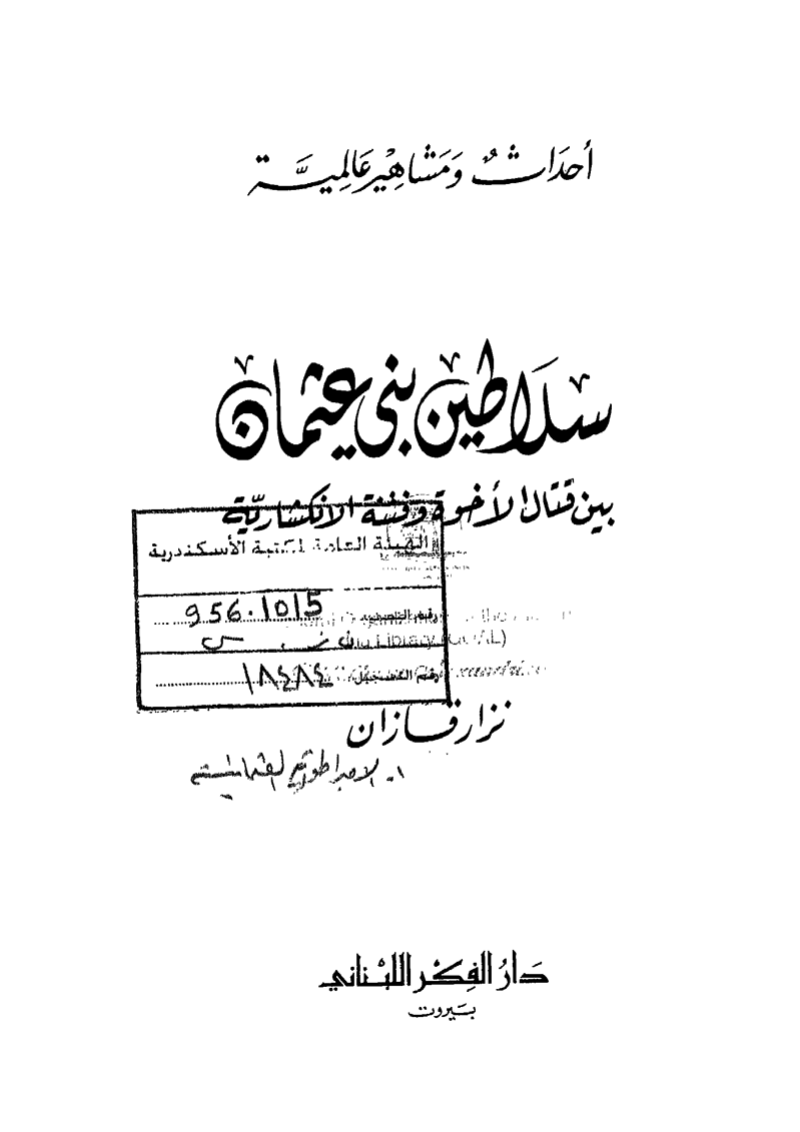 أحدَاثٌ وَمَشاهِيْر عَالِميَّة
سلَاطين بَني عثمان
بين قتال الأخوة وفتنة الانكشاريّة
الهيئة العامة لمكتبة الأسكندرية
رقم التصنيف 956.1015
رقم التسجيل ١٨٤٨٤
نزار قازان
١. الامبراطورية العثمانية
دَارُ الفِكْر اللبْناني
بَيروت